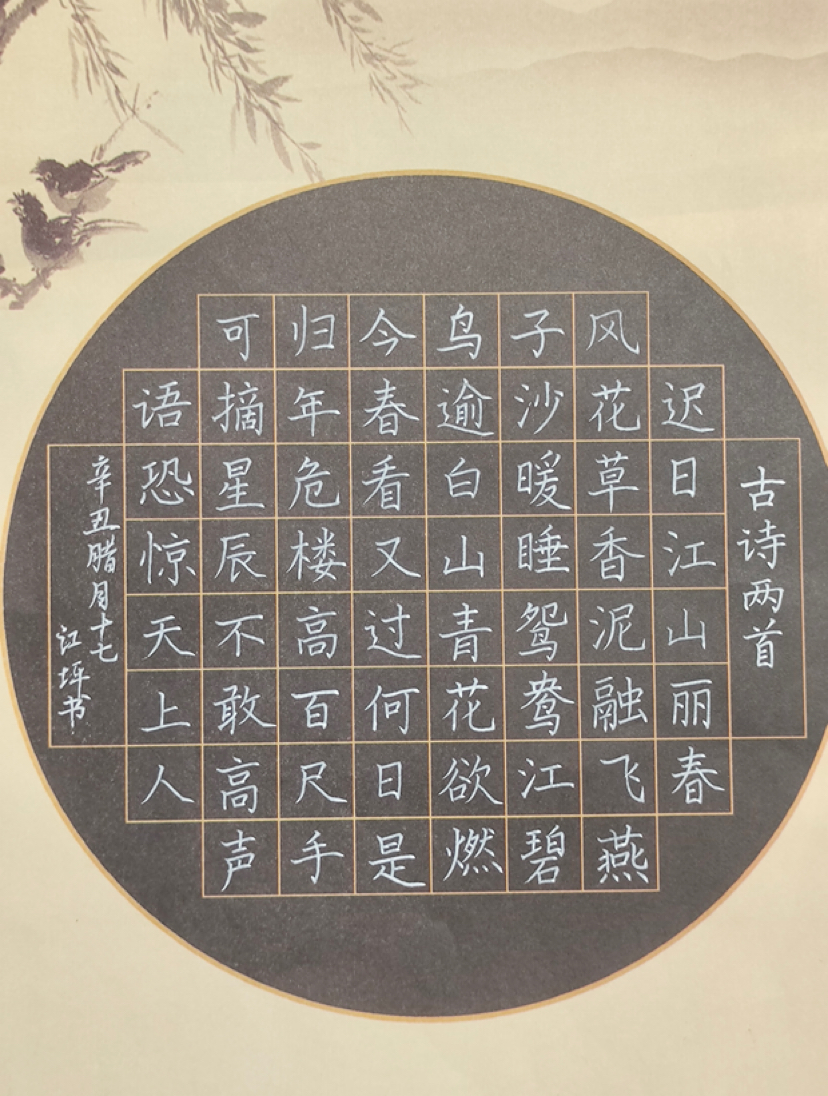 古诗两首
迟日江山丽春
风花草香泥融飞燕
子沙暖睡鸳鸯江碧
鸟逾白山青花欲燃
今春看又过何日是
归年危楼高百尺手
可摘星辰不敢高声
语恐惊天上人
辛丑腊月十七
江坪书